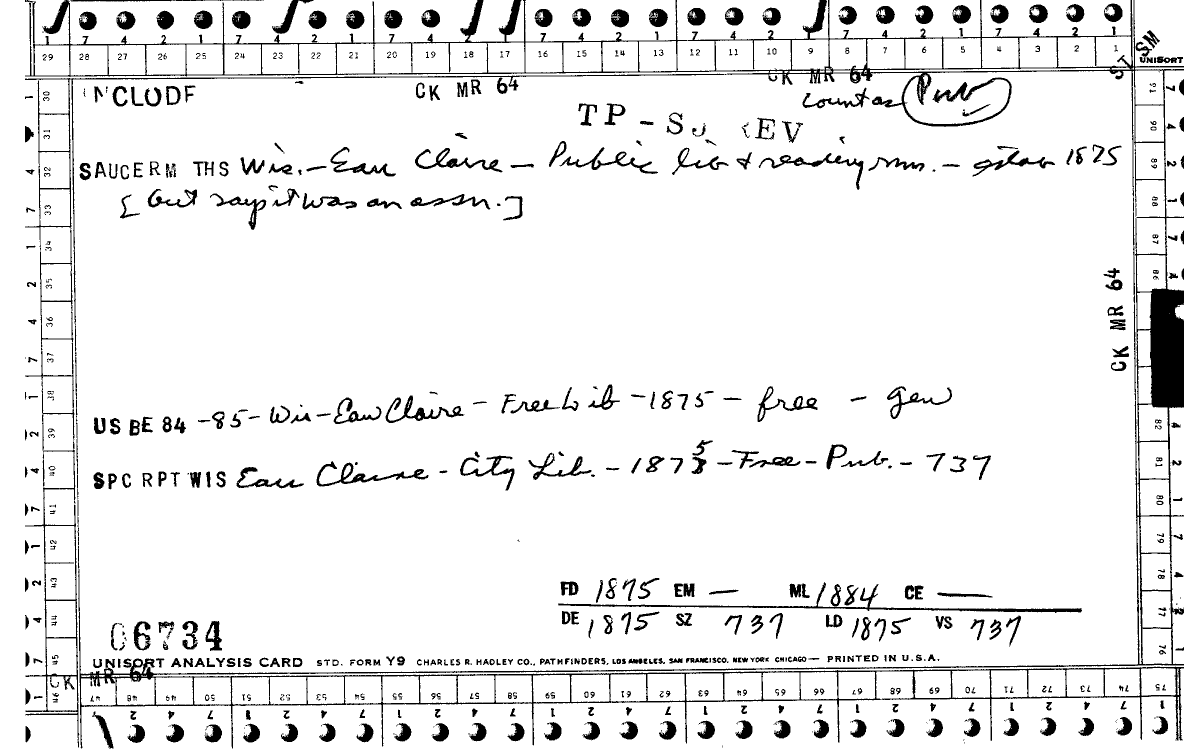 1 7 4 2 1 7 4 2 1 7 4 2 1 7 4 2 1 7 4 2 1 7 4 2 1 7 4 2 1
29 28 27 26 25 24 23 22 21 20 19 18 17 16 15 14 13 12 11 10 9 8 7 6 5 4 3 2 1
ST SM
UNISORT
CK MR 64
INCLUDE
CK MR 64
count as Pub
TP-SU REV
SAUCERM THS Wis.-Eau Claire - Public lib & reading rm. - estab 1875
[but says it was an assn.]
CK MR 64
US BE 84-85-Wis-Eau Claire-Free Lib-1875-free-gen
SPC RPT WIS Eau Claire-City Lib.-1875-Free-Pub.-737
FD 1875 EM — ML 1884 CE —
DE 1875 SZ 737 LD 1875 VS 737
06734
UNISORT ANALYSIS CARD STD. FORM Y9 CHARLES R. HADLEY CO., PATHFINDERS, LOS ANGELES, SAN FRANCISCO, NEW YORK CHICAGO — PRINTED IN U.S.A.
CK MR 64
30 31 32 33 34 35 36 37 38 39 40 41 42 43 44 45 46
47 48 49 50 51 52 53 54 55 56 57 58 59 60 61 62 63 64 65 66 67 68 69 70 71 72 73 74 75
76 77 78 79 80 81 82 86 87 88 89 90 91